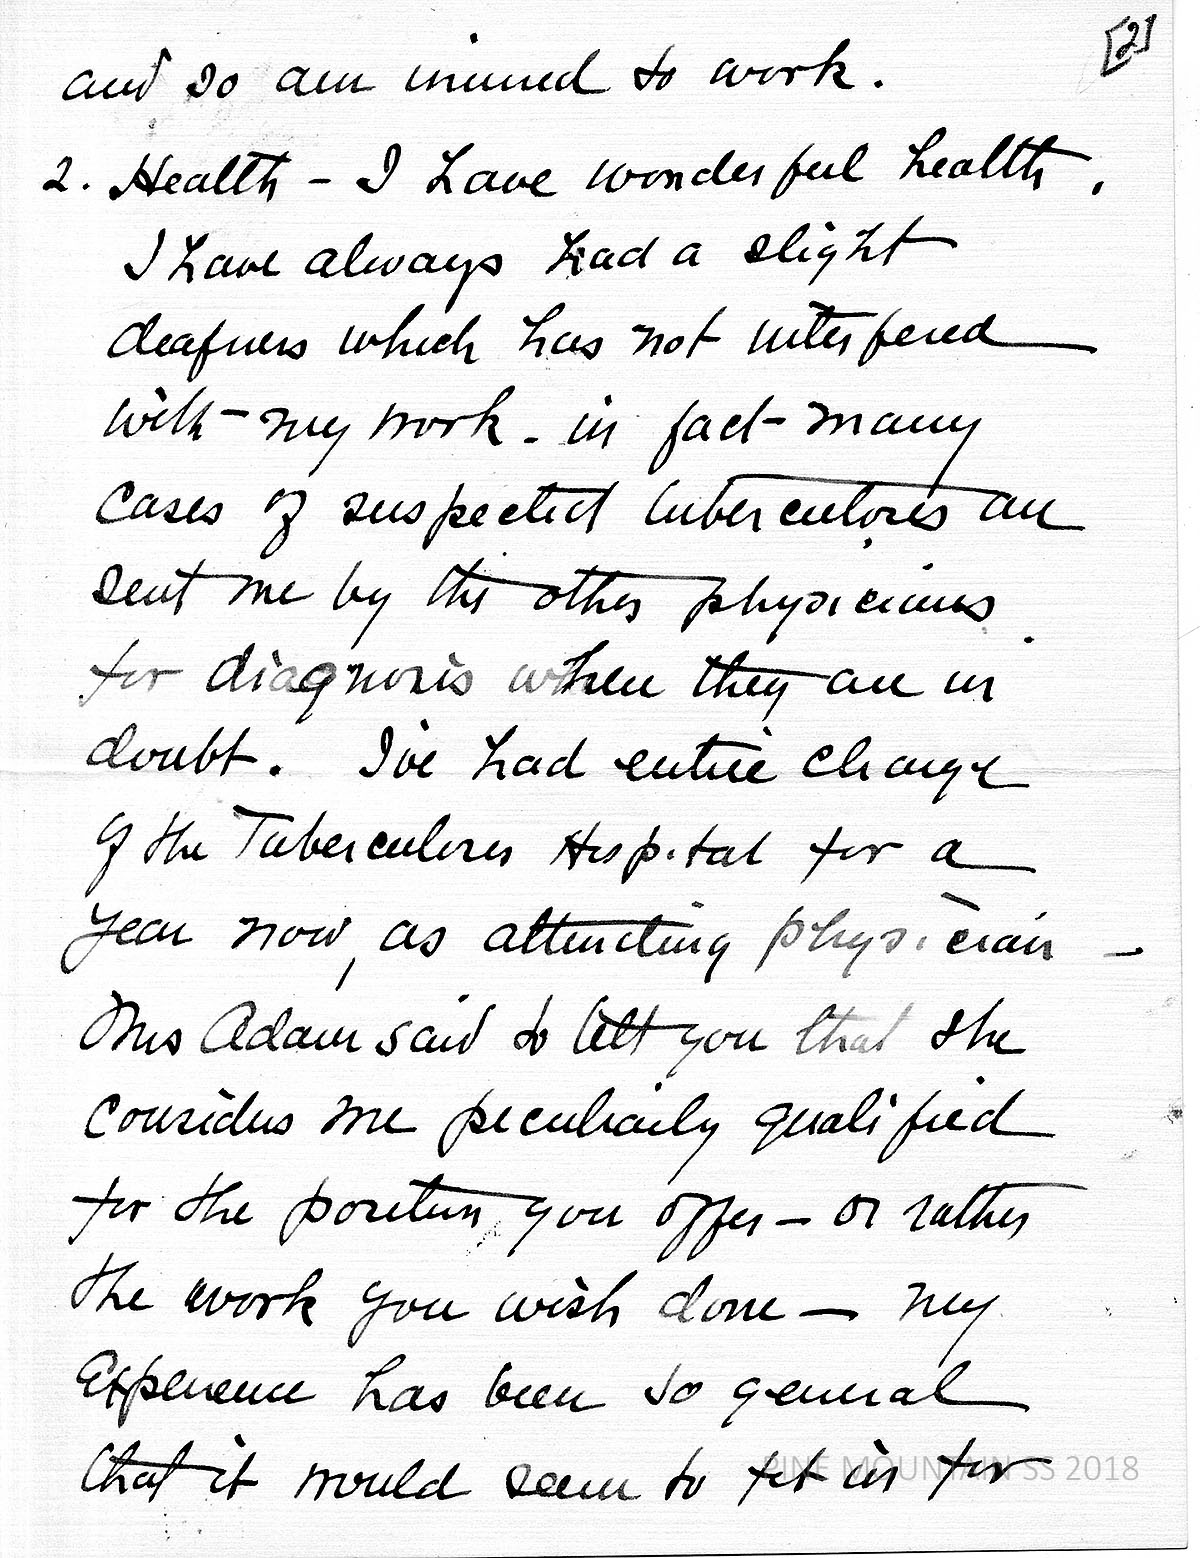 [2]
and so am inured to work.
2. Health - I have wonderful health.
I have always had a slight
deafness which has not interfered
with my work - in fact many
cases of suspected tuberculosis are
sent me by the other physicians
for diagnosis when they are in
doubt. I've had entire charge
of the Tuberculosis Hospital for a
year now, as attending physician -
Miss Adam said to tell you that she
considers me peculiarly qualified
for the position you offer - or rather
the work you wish done - my
Experience has been so general
that it would seem to fit in for
PINE MOUNTAIN SS 2018